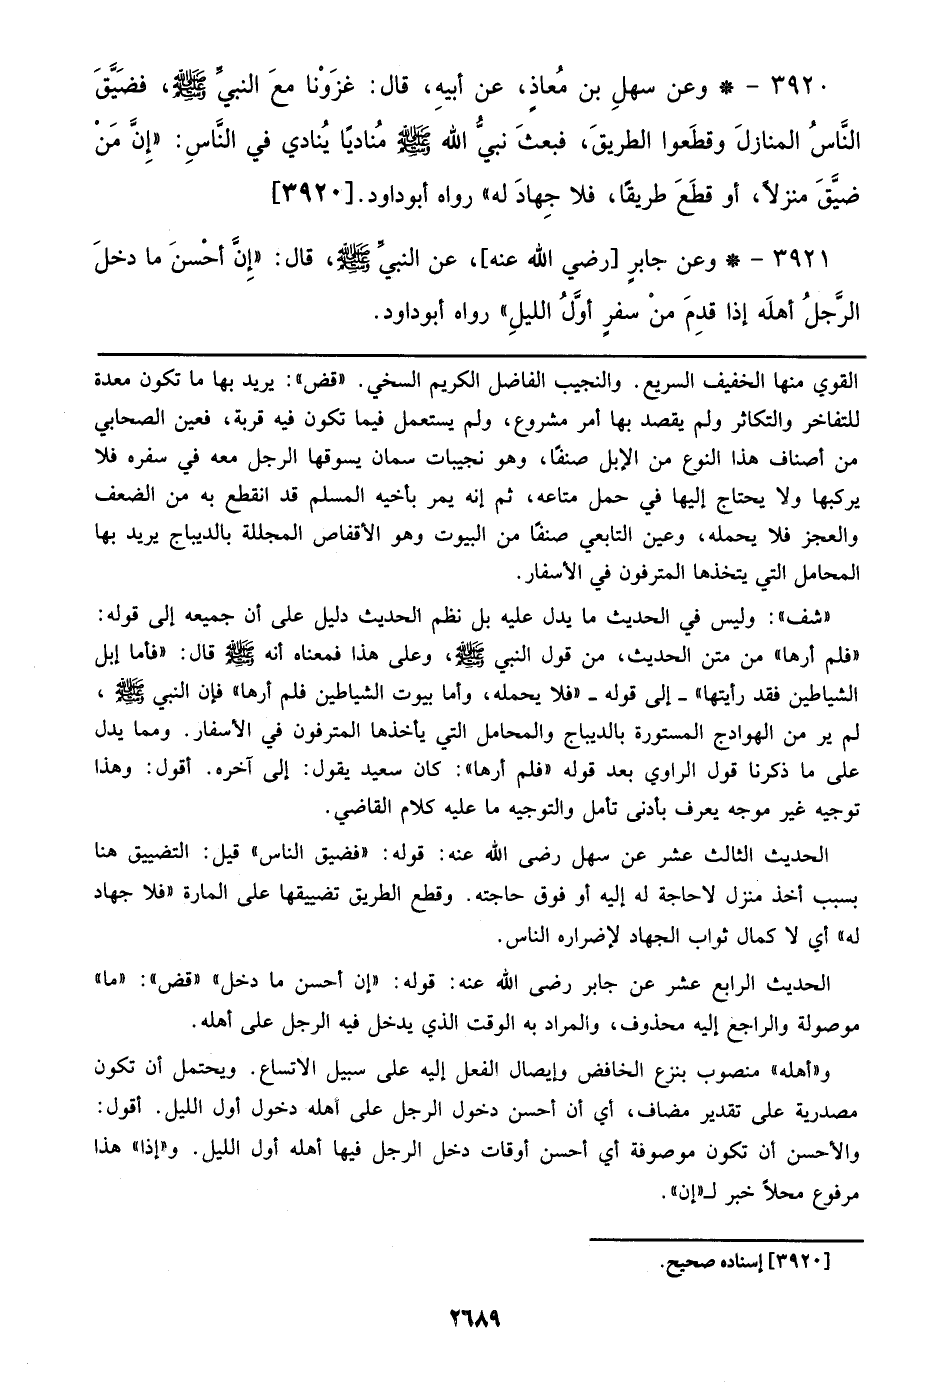 ٣٩٢٠ – * وعن سهلِ بن مُعاذٍ، عن أبيهِ، قال: غزَوْنا معَ النبيِّ ﷺ، فضَيَّقَ
النَّاسُ المنازلَ وقطَعوا الطريقَ، فبعثَ نبيُّ الله ﷺ مناديًا يُنادي في النَّاسِ: «إِنَّ مَنْ
ضيَّقَ منزلاً، أو قطَعَ طريقًا، فلا جِهادَ له» رواه أبوداود. [٣٩٢٠]
٣٩٢١ – * وعن جابرٍ [رضي الله عنه]، عن النبيِّ ﷺ، قال: «إِنَّ أحْسنَ ما دخلَ
الرَّجلُ أهلَه إذا قدِمَ منْ سفرٍ أوَّلُ الليلِ» رواه أبوداود.
القوي منها الخفيف السريع. والنجيب الفاضل الكريم السخي. «قض»: يريد بها ما تكون معدة
للتفاخر والتكاثر ولم يقصد بها أمر مشروع، ولم يستعمل فيما تكون فيه قربة، فعين الصحابي
من أصناف هذا النوع من الإبل صنفًا، وهو نجيبات سمان يسوقها الرجل معه في سفره فلا
يركبها ولا يحتاج إليها في حمل متاعه، ثم إنه يمر بأخيه المسلم قد انقطع به من الضعف
والعجز فلا يحمله، وعين التابعي صنفًا من البيوت وهو الأقفاص المجللة بالديباج يريد بها
المحامل التي يتخذها المترفون في الأسفار.
«شف»: وليس في الحديث ما يدل عليه بل نظم الحديث دليل على أن جميعه إلى قوله:
«فلم أرها» من متن الحديث، من قول النبي ﷺ، وعلى هذا فمعناه أنه ﷺ قال: «فأما إبل
الشياطين فقد رأيتها» ـ إلى قوله ـ «فلا يحمله، وأما بيوت الشياطين فلم أرها» فإن النبي ﷺ ،
لم ير من الهوادج المستورة بالديباج والمحامل التي يأخذها المترفون في الأسفار. ومما يدل
على ما ذكرنا قول الراوي بعد قوله «فلم أرها»: كان سعيد يقول: إلى آخره. أقول: وهذا
توجيه غير موجه يعرف بأدنى تأمل والتوجيه ما عليه كلام القاضي.
الحديث الثالث عشر عن سهل رضى الله عنه: قوله: «فضيق الناس» قيل: التضييق هنا
بسبب أخذ منزل لاحاجة له إليه أو فوق حاجته. وقطع الطريق تضييقها على المارة «فلا جهاد
له» أي لا كمال ثواب الجهاد لإضراره الناس.
الحديث الرابع عشر عن جابر رضى الله عنه: قوله: «إن أحسن ما دخل» «قض»: «ما»
موصولة والراجع إليه محذوف، والمراد به الوقت الذي يدخل فيه الرجل على أهله.
و«أهله» منصوب بنزع الخافض وإيصال الفعل إليه على سبيل الاتساع. ويحتمل أن تكون
مصدرية على تقدير مضاف، أي أن أحسن دخول الرجل على أهله دخول أول الليل. أقول:
والأحسن أن تكون موصوفة أي أحسن أوقات دخل الرجل فيها أهله أول الليل. و«إذا» هذا
مرفوع محلاً خبر لـ«إن».
[٣٩٢٠] إسناده صحيح.
٢٦٨٩